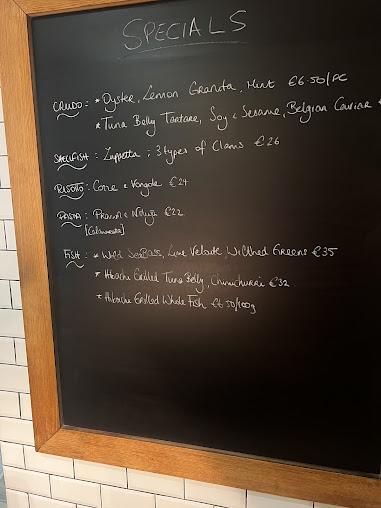 SPECIALS
CRUDO : * Oyster, Lemon Granita, Mint €6.50/PC
* Tuna Belly Tartare, Soy & Sesame, Belgian Caviar
SHELLFISH : Zuppetta ; 3 types of Clams €26
RISOTTO : Cozze & Vongole €24
PASTA : & Nduja €22
[Calamarata]
FISH : * Wild SeaBass, Lime Veloute, Wilthed Greens €35
* Hibachi Grilled Tuna Belly, Chimichurri €32
* Hibachi Grilled Whole Fish €6.50/100g